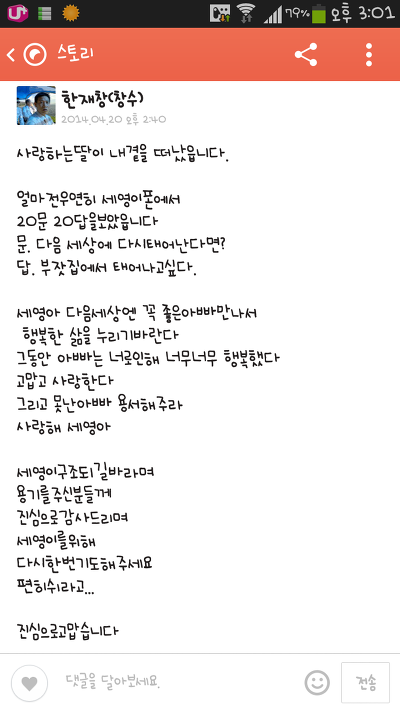 79% 오후 3:01
스토리
한재창(창수)
2014.04.20 오후 2:40
사랑하는딸이 내곁을 떠났읍니다.
얼마전우연히 세영이폰에서
20문 20답을보았읍니다
문. 다음 세상에 다시태어난다면?
답. 부잣집에서 태어나고싶다.
세영아 다음세상엔 꼭 좋은아빠만나서
행복한 삶을 누리기바란다
그동안 아빠는 너로인해 너무너무 행복했다
고맙고 사랑한다
그리고 못난아빠 용서해주라
사랑해 세영아
세영이구조되길바라며
용기를주신분들께
진심으로감사드리며
세영이를위해
다시한번기도해주세요
편히쉬라고...
진심으로고맙습니다
댓글을 달아보세요.
전송